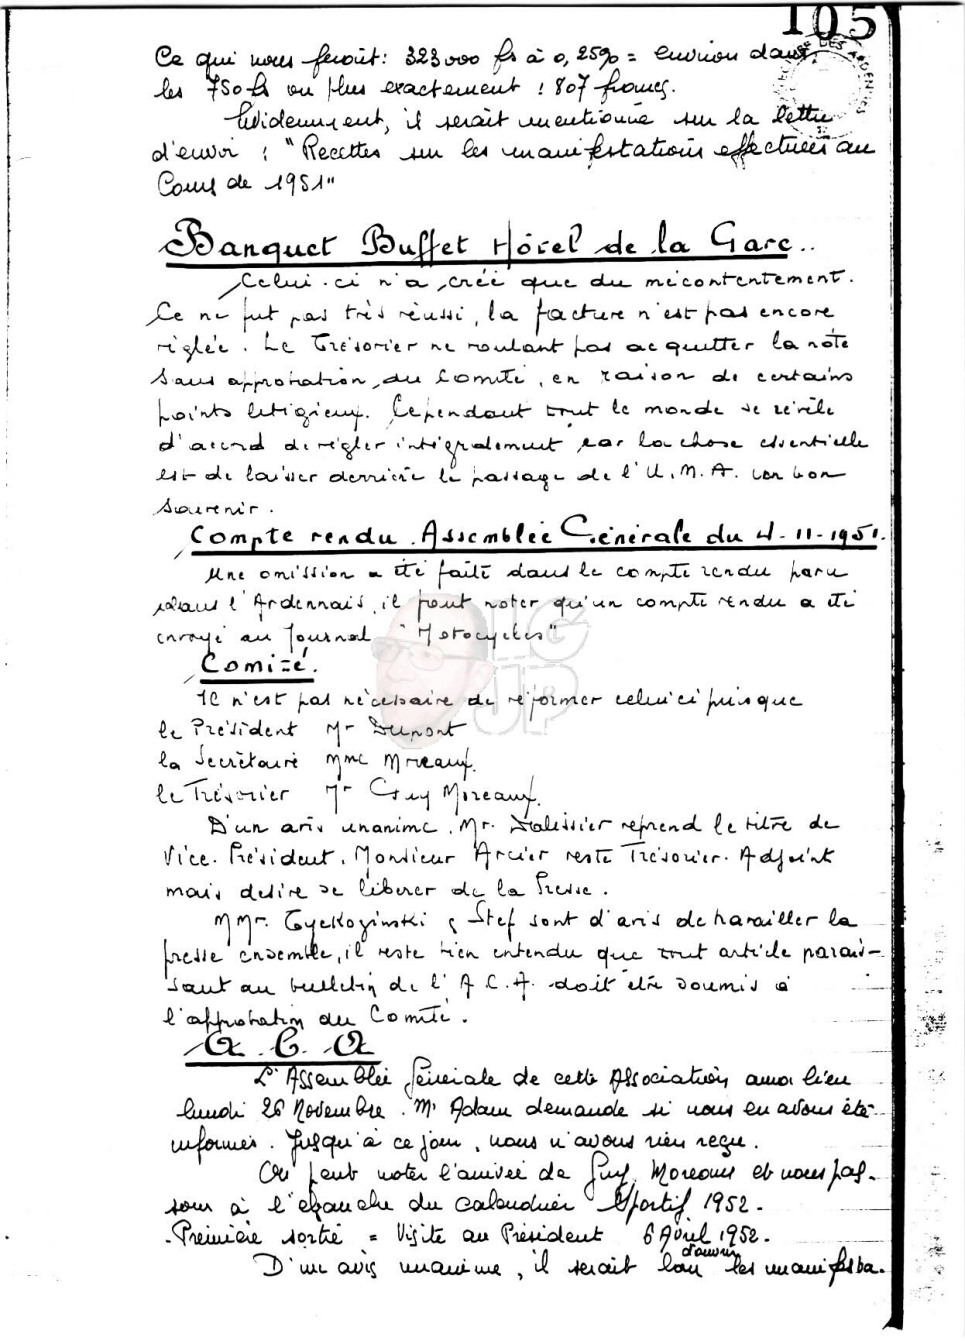 105
Ce qui nous feroit : 323 000 frs à 0,25% = environ dans
les 750 frs ou plus exactement : 807 francs.
Evidemment, il serait mentionné sur la lettre
d'envoi : "Recettes sur les manifestations effectuées au
Cours de 1951"
Banquet Buffet Hôtel de la Gare..
Celui-ci n'a créé que du mécontentement.
Ce ne fut pas très réussi, la facture n'est pas encore
réglée. Le Trésorier ne voulant pas acquitter la note
sans approbation du Comité, en raison de certains
points litigieux. Cependant tout le monde se révèle
d'accord de régler intégralement car la chose essentielle
est de laisser derrière le passage de l'U.M.A. un bon
souvenir.
Compte rendu Assemblée Générale du 4-11-1951.
Une omission a été faite dans le compte rendu paru
dans l'Ardennais, il faut noter qu'un compte rendu a été
envoyé au journal "Motocycles"
Comité.
Il n'est pas nécessaire de réformer celui ci puisque
le Président Mr Dupont
la Secrétaire Mme Moreaux.
le Trésorier Mr Guy Moreaux.
D'un avis unanime, Mr. reprend le titre de
Vice-Président, Monsieur Arcier reste Trésorier-Adjoint
mais désire se libérer de la Presse.
MMr. & Stef sont d'avis de travailler la
presse ensemble, il reste bien entendu que tout article parais-
sant au bulletin de l'A.C.A. doit être soumis à
l'approbation du Comité.
A.C.A
L'Assemblée Générale de cette Association aura lieu
lundi 26 Novembre. Mr Adam demande si nous en avons été
informés. Jusqu'à ce jour, nous n'avons rien reçu.
On peut noter l'arrivée de Guy Moreaux et nous pas-
sons à l'ébauche du calendrier Sportif 1952.
-Première sortie = Visite au Président 6 Avril 1952.
D'un avis unanime, il serait bon d'ouvrir les manifesta-